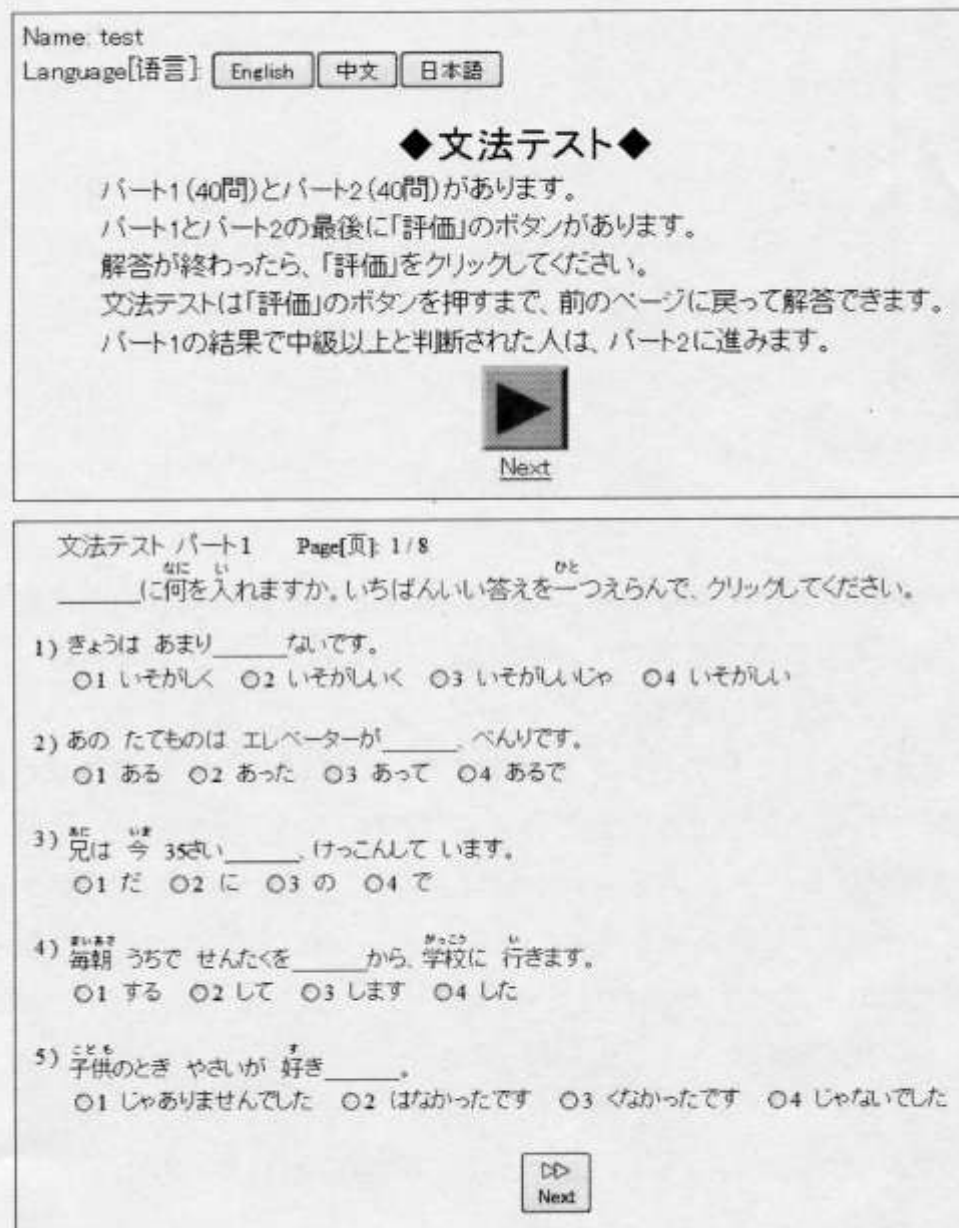 Name: test
Language[语言]: English 中文 日本語
◆文法テスト◆
パート1(40問)とパート2(40問)があります。
パート1とパート2の最後に「評価」のボタンがあります。
解答が終わったら、「評価」をクリックしてください。
文法テストは「評価」のボタンを押すまで、前のページに戻って解答できます。
パート1の結果で中級以上と判断された人は、パート2に進みます。
Next
文法テスト パート1 Page[页]: 1/8
なに い ひと
______に何を入れますか。いちばんいい答えを一つえらんで、クリックしてください。
1) きょうは あまり______ないです。
○1 いそがしく ○2 いそがしいく ○3 いそがしいじゃ ○4 いそがしい
2) あの たてものは エレベーターが______、べんりです。
○1 ある ○2 あった ○3 あって ○4 あるで
あに いま
3) 兄は 今 35さい______、けっこんして います。
○1 だ ○2 に ○3 の ○4 で
まいあさ がっこう い
4) 毎朝 うちで せんたくを______から、学校に 行きます。
○1 する ○2 して ○3 します ○4 した
こども す
5) 子供のとき やさいが 好き______。
○1 じゃありませんでした ○2 はなかったです ○3 くなかったです ○4 じゃないでした
▷▷
Next